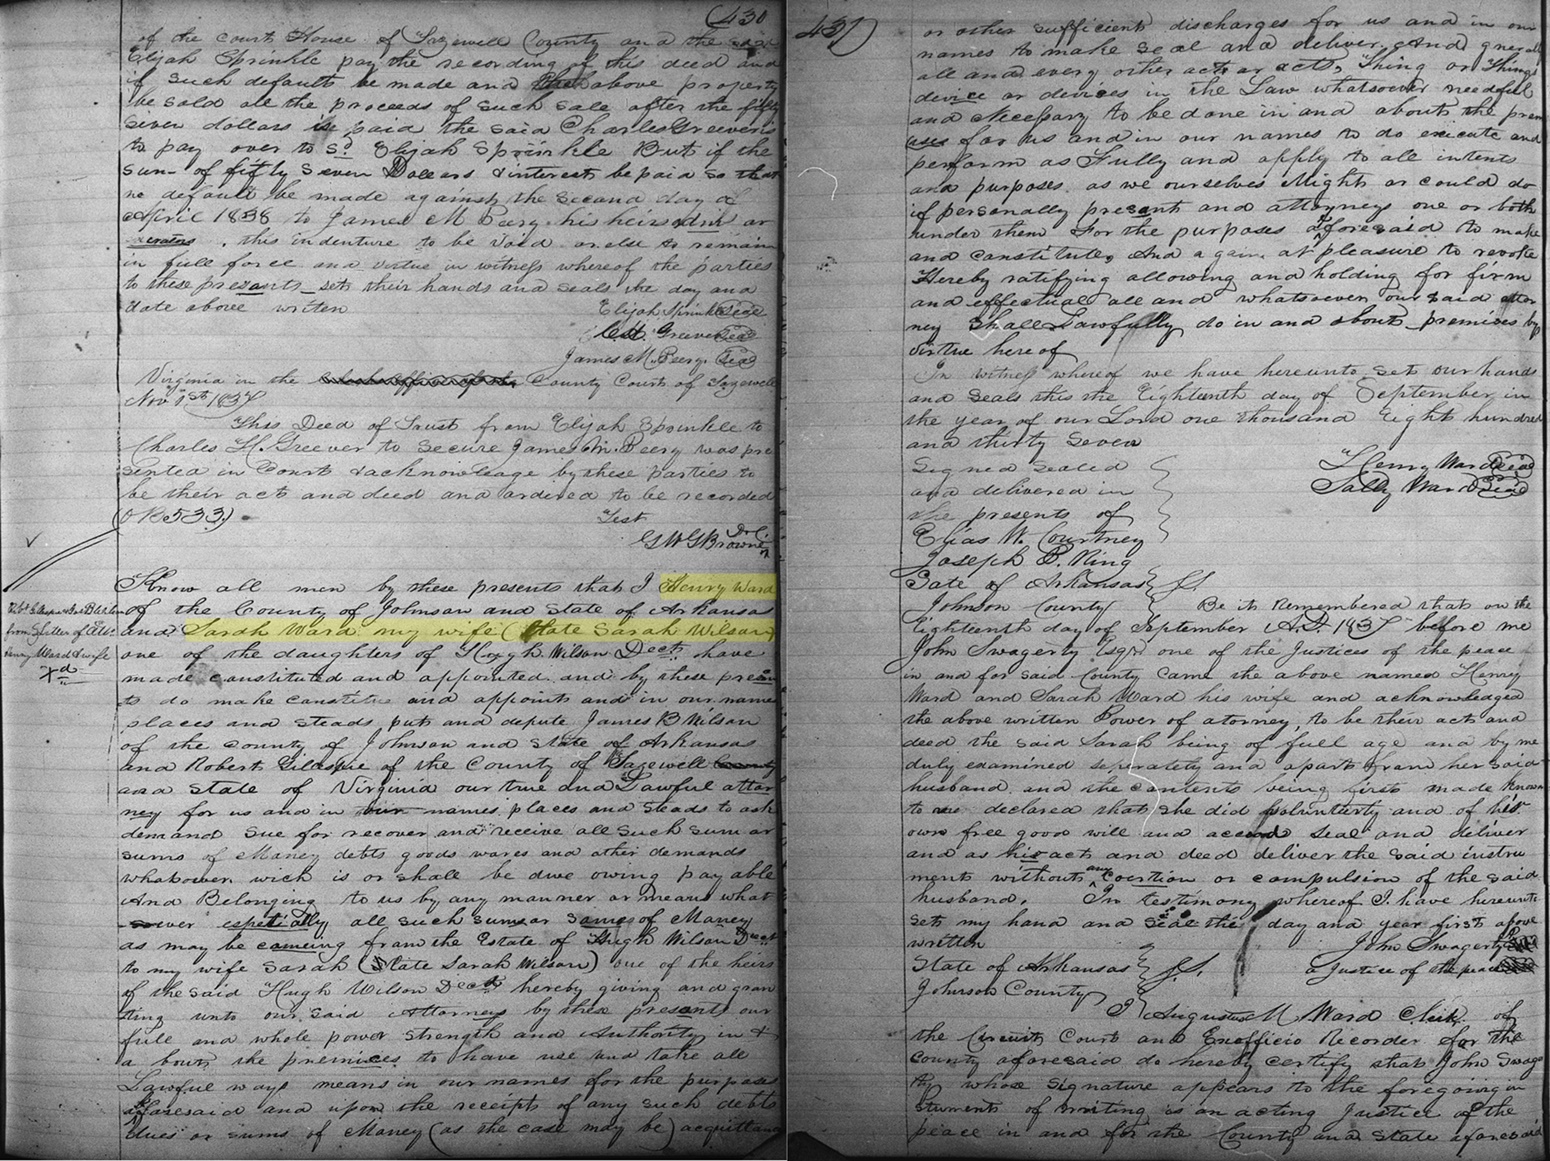 430
of the court House of Tazewell County and the said
Elijah Sprinkle pay the recording of this deed and
if such default be made and the above property
be sold all the proceeds of such sale after the fifty
seven dollars is paid the said Charles Greever is
to pay over to sd Elijah Sprinkle But if the
sum of fifty seven Dollars & interest be paid so that
no default be made against the second day of
April 1838 to James M Peery his heirs or
this indenture to be void or else to remain
in full force and virtue in witness whereof the parties
to these presants sets their hands and seals the day and
date above written
Elijah Sprinkle Seal
C.H. Greever Seal
James M. Peery. Seal
Virginia in the County Court of Tazewell
Nov 1st 1837
This Deed of Trust from Elijah Sprinkle to
Charles H. Greever to secure James M. Peery was pre
sented in Court & acknowledge by these parties to
be their act and deed and ordered to be recorded
(OB533)
Test
GWGBrowne D.C.
Know all men by these presents that I Henry Ward
of the County of Johnson and State of Arkansas
and Sarah Ward my wife (late Sarah Wilson)
one of the daughters of Hugh Wilson Decd have
made constituted and appointed and by these presen
ts do make constitue and appoint and in our names
places and steads put and depute James B Wilson
of the county of Johnson and State of Arkansas
and Robert Gillespie of the County of Tazewell County
and State of Virginia our true and Lawful attor
ney for us and in our names places and steads to ask
demand sue for recover and receive all such sum or
sums of Money debts goods wares and other demands
whatsoever wich is or shall be due owing payable
And Belonging to us by any manner or means what
-soever espetially all such sums or sames of Money
as may be comeing from the Estate of Hugh Wilson Decd
to my wife Sarah (late Sarah Wilson) one of the heirs
of the said Hugh Wilson Decd hereby giving and gran
ting unto our said Attorneys by these presents our
full and whole power strength and Authority in &
a bout the premices to have use and take all
Lawful ways means in our names for the purposes
afforesaid and upon the receipts of any such debts
dues or sums of Money (as the case may be) acquittance
from of
Henry Ward & wife
xd
431
or other sufficient discharges for us and in our
names to make seal and deliver. And generall
all and every other act or acts, Thing or Things
device or devices in the Law whatsoever needful
and Necessary to be done in and about the prem
ises for us and in our names to do execute and
perform as Fully and apply to all intents
and purposes. as we ourselves Might or could do
if personally present and attorneys one or both
under them For the purposes afforesaid to make
and constitute, And again at pleasure to revoke
Hereby ratifying allowing and holding for firm
and effectual all and whatsoever our said attor
ney shall Lawfully do in and about premises by
virtue here of
In witness whereof we have hereunto set our hands
and seals this the Eighteenth day of September in
the year of our Lord one thousand Eight hundred
and thirty seven
Signed sealed
and delivered in
the presents of
Elias W. Courtney
Joseph B. King
Henry Ward Seal
Sally Ward Seal
State of Arkansas
Johnson County
Be it Remembered that on the
Eighteenth day of September A.D. 1837 before me
John Swagerty Esqr one of the Justices of the peace
in and for said County Came the above named Henry
Ward and Sarah Ward his wife and acknowledged
the above written Power of attorney, to be their act and
deed the said Sarah being of full age and by me
duly examined seperately and apart from her said
husband and the contents being first made known
to declared that she did volunterly and of her
own free good will and accord seal and deliver
and as his act and deed deliver the said instru
ment without any coertion or compulsion of the said
husband. In testimony whereof I have hereunto
set my hand and seal the day and year first above
written
John Swagerty
a Justice of the peace
State of Arkansas
Johnson County
I Augustus M Ward Clerk of
the Circuit Court and Exofficio Recorder for the
County aforesaid do hereby certify that John Swage
rty whose signature appears to the foregoing in
struments of writing is an acting Justice of the
peace in and for the County and State aforesaid